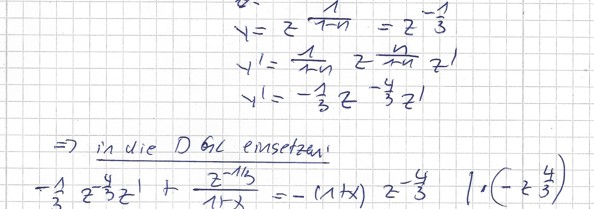 y = z^(1/(1-n)) = z^(-1/3)
y' = 1/(1-n) z^(n/(1-n)) z'
y' = -1/3 z^(-4/3) z'
=> in die DGL einsetzen!
-1/3 z^(-4/3) z' + z^(-1/3)/(1+x) = -(1+x) z^(-4/3) | · (-z^(4/3))